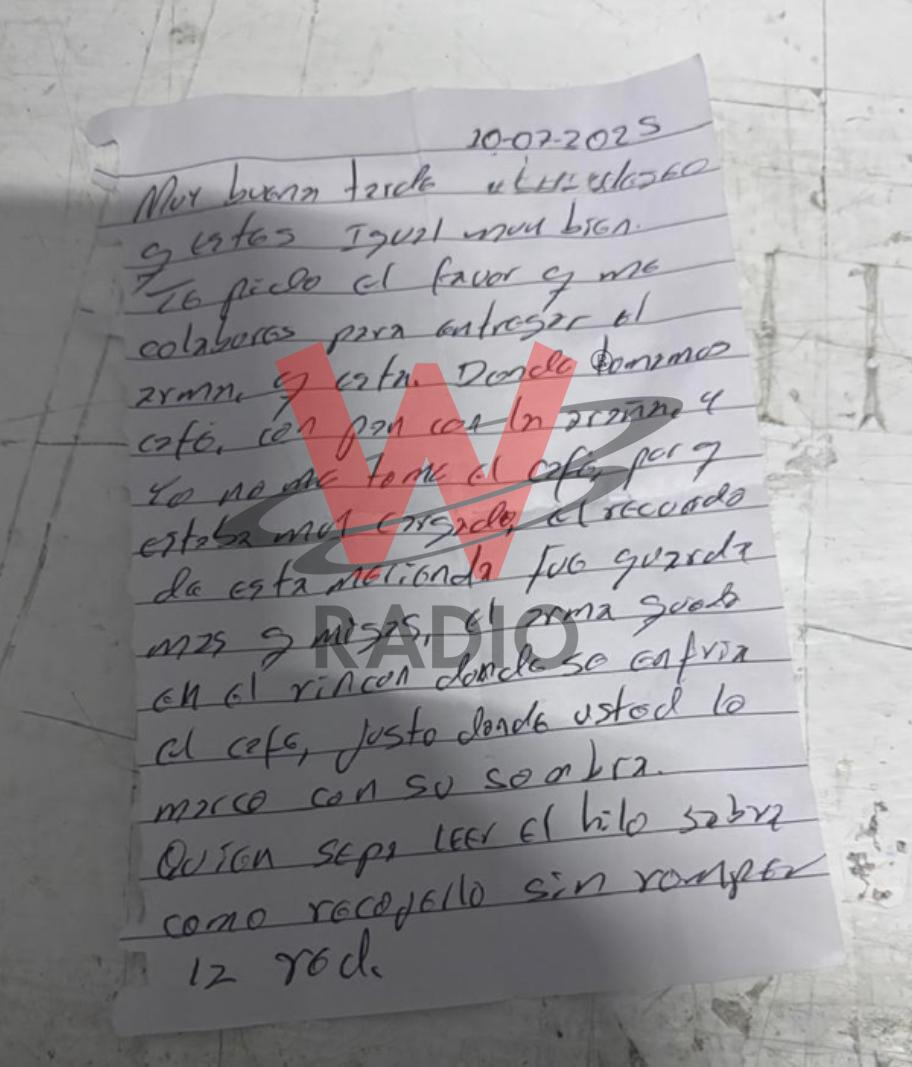 10-07-2025
Muy buena tarde
q estes Igual muy bien.
Te pido el favor q me
colabores para entregar el
arma, q esta. Donde tomamos
café, con pan con la araña, y
Yo no me tome el café, por q
estaba muy cargado, el recuerdo
de esta merienda fue guarda
mas q migas, el arma quedo
en el rincon donde se enfria
el cafe, justo donde usted lo
marco con su sombra.
Quien sepa LEER El hilo sabra
como recogello sin romper
la red.
W
RADIO